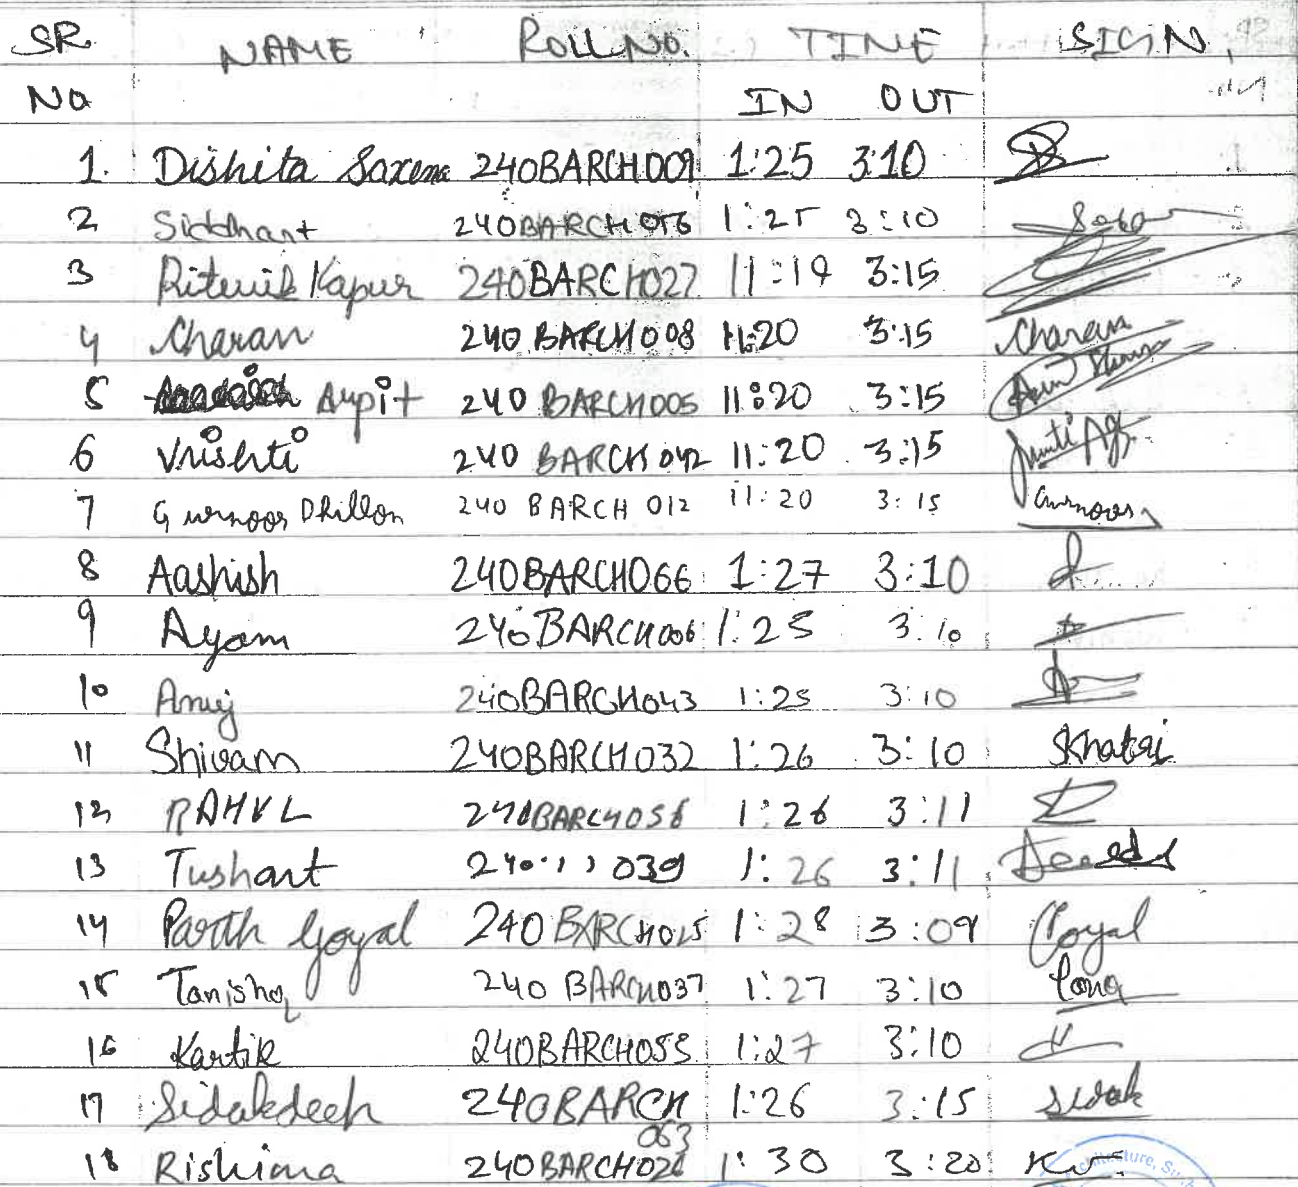 SR. NAME ROLL NO. TIME SIGN.
No IN OUT
1. Dishita Saxena 240BARCH009 1:25 3:10
2 Siddhant 240BARCH056 1:25 3:10
3 Kapur 240BARCH027 11:19 3:15
4 Charan 240 BARCH008 11:20 3:15 Charan
5 Arpit 240 BARCH005 11:20 3:15
6 Vrishti 240 BARCH 042 11:20 3:15
7 Gurnoor Dhillon 240 BARCH 012 11:20 3:15 Gurnoor
8 Aashish 240BARCH066 1:27 3:10
9 Ayam 240BARCH006 1:25 3:10
10 Anuj 240BARCH043 1:25 3:10
11 Shivam 240BARCH032 1:26 3:10 Skhatri
12 RAHUL 1:26 3:11
13 Tushant 240 '' '' 039 1:26 3:11
14 Parth Goyal 240 BARCH025 1:28 3:09 Goyal
15 Tanishq 240 BARCH037 1:27 3:10
16 Kartik 240BARCH055 1:27 3:10
17 Sidakdeep 240BARCH 1:26 3:15 Sidak
063
18 Rishima 1:30 3:20